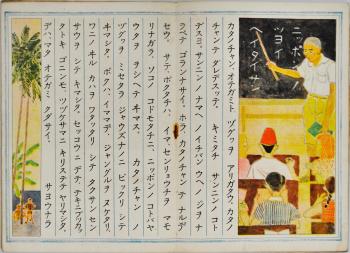 ニッポンノ
ツヨイ
ヘイタイサン
カタノチャン、オテガミト ヅグヮヲ アリガタウ。カタノ
チャンテ ダレデスッテ。 キミタチ サンニンノ コト
デスヨ。サンニンノ ナマヘノ イチバン ウヘノ ジヲ ナ
ラベテ ゴランナサイ。ホラ、カタノチャンテ ナルデ
セウ。サテ、ボクタチハ、イマ、センリョウチヲ マモ
リナガラ、ソコノ コドモタチニ、ニッポンノ コトバヤ
ウタヲ ヲシヘテ ヰマス。 カタノチャンノ
ヅグヮヲ ミセタラ、ジャウズナノニ ビックリ シテ
ヰマシタ。ボクハ、イママデ、ジャングルヲ ヌケタリ、
ワニノ ヰル カハヲ ワタッタリ シテ タクサン セン
サウヲ シテ キマシタ。セッコウニ デテ テキニ ブッカッ
タトキ ゴニンモ、ツヅケサマニ キリステテ ヤリマシタ。
デハ、マタ オテガミ クダサイ。 サヨウナラ